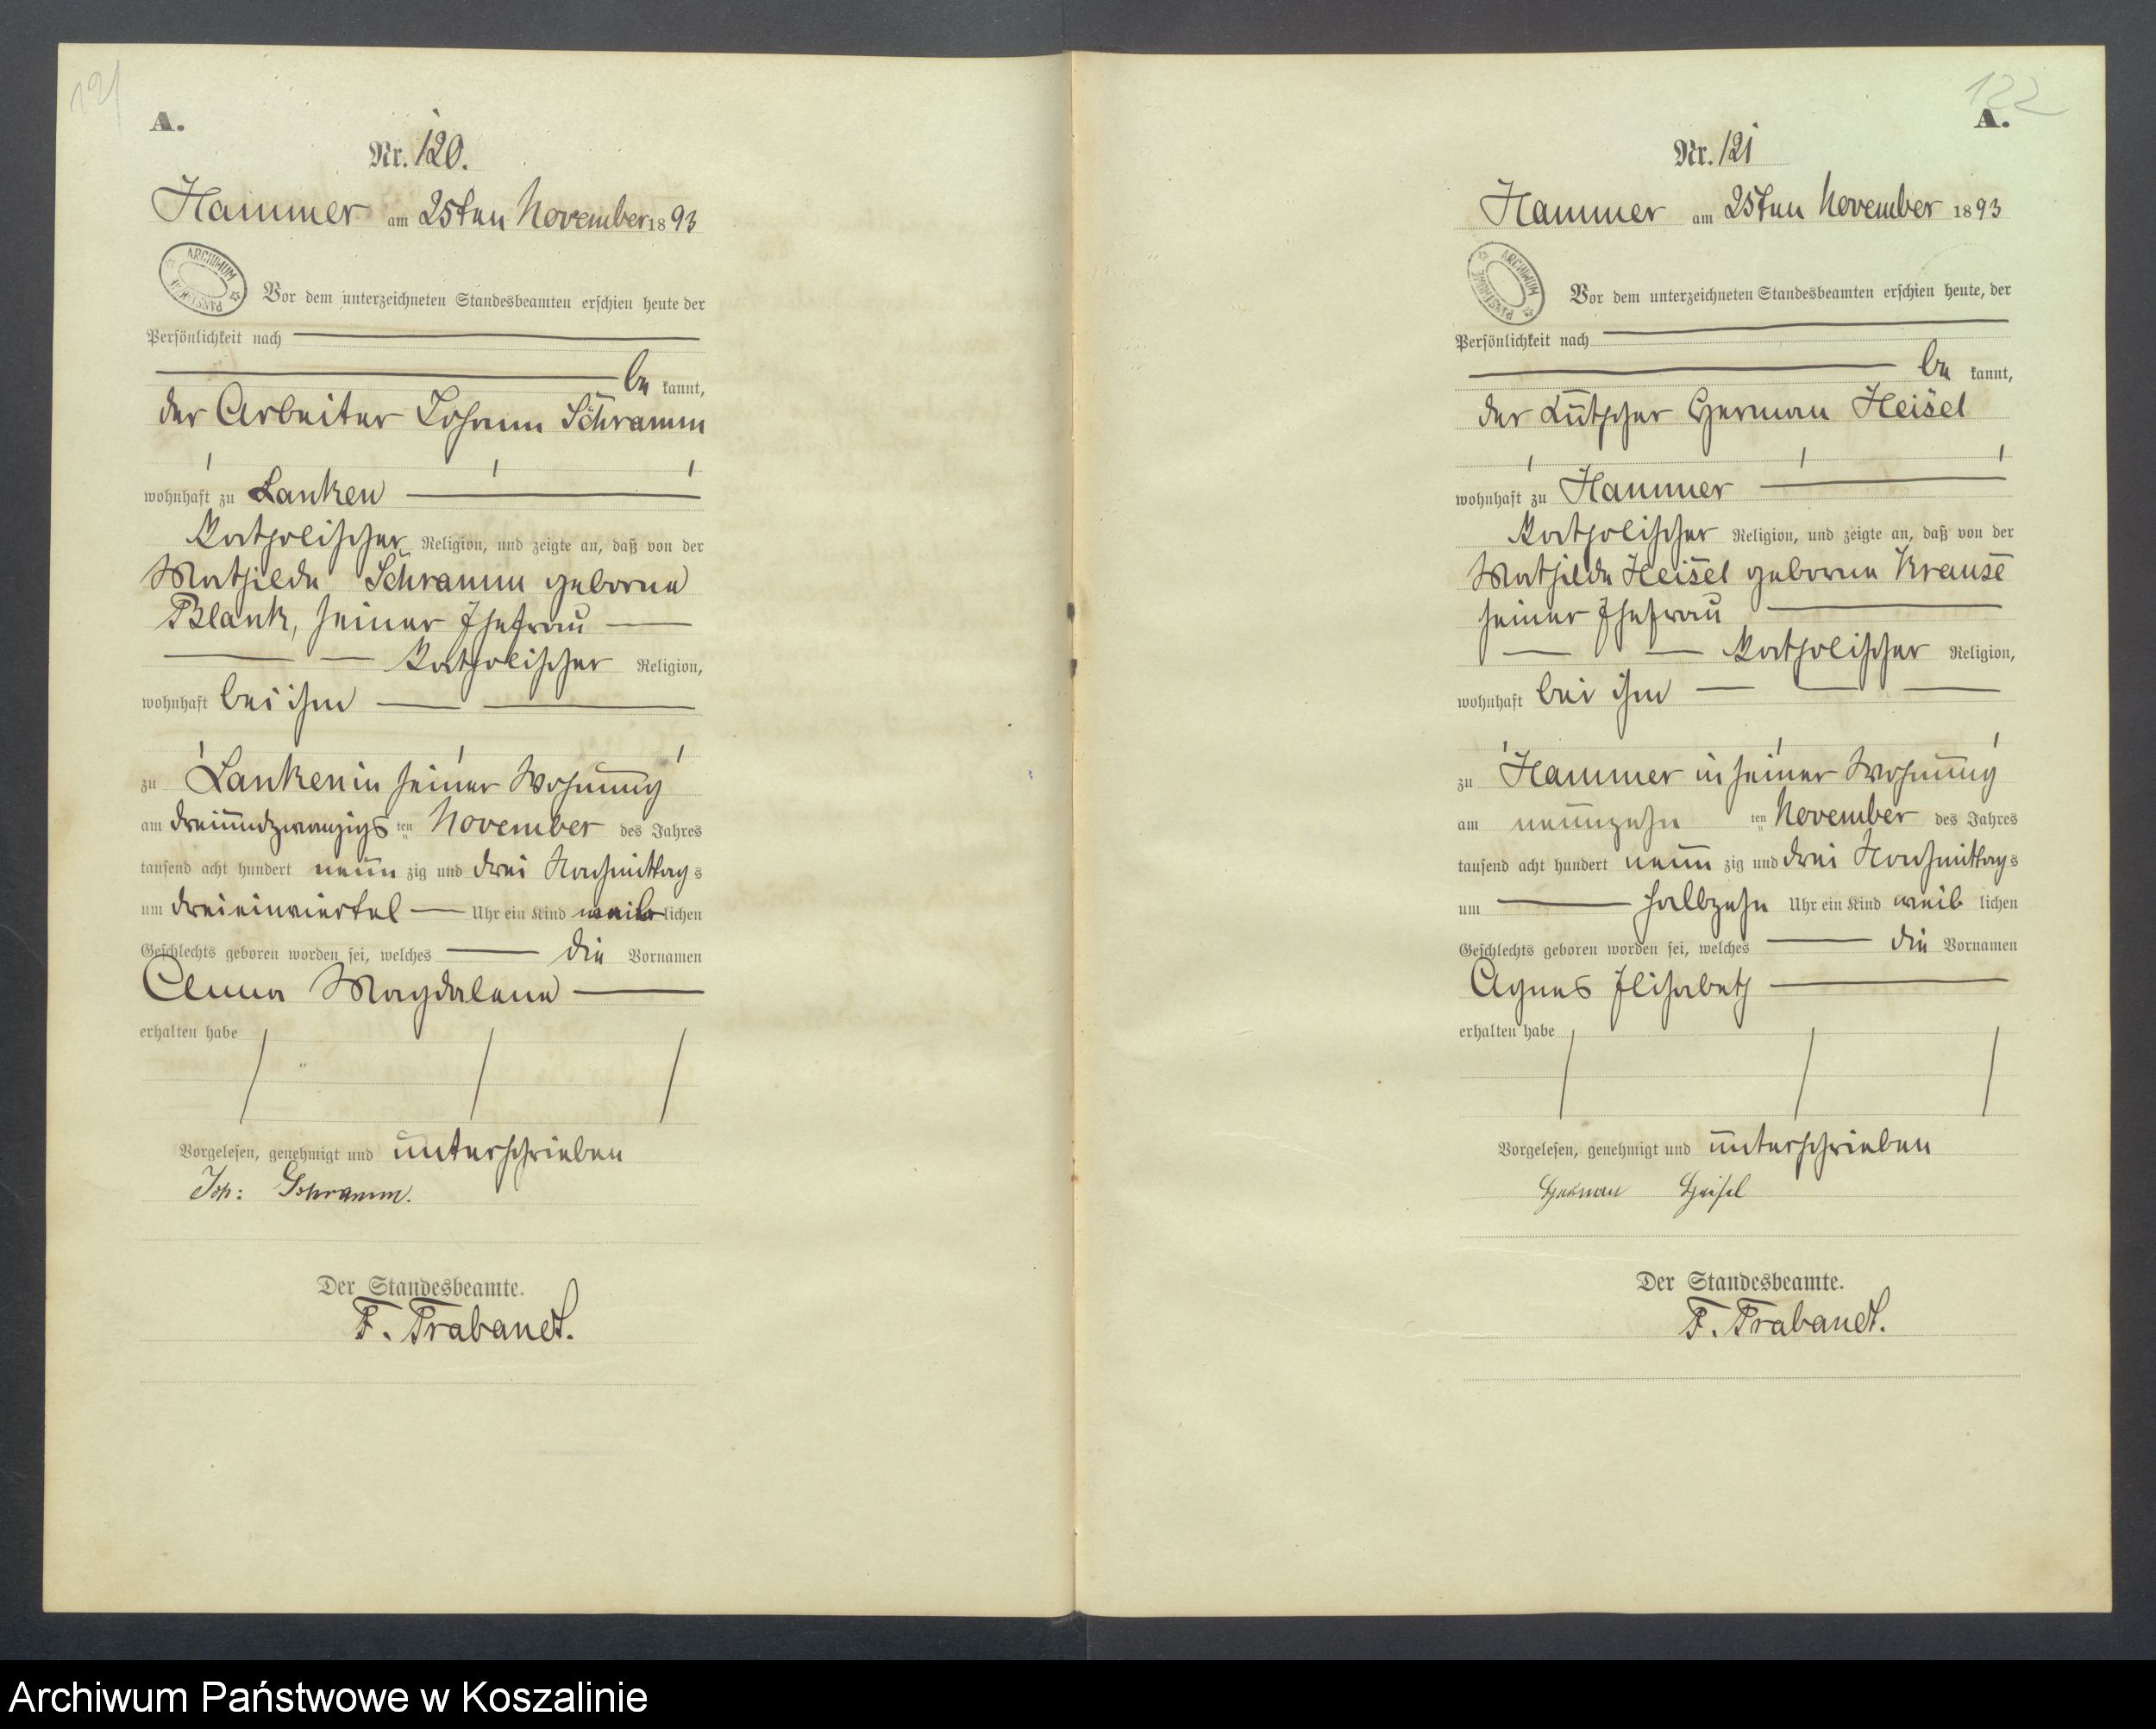 121
A.
Nr. 120.
Hammer am 25ten November 1893
ARCHIWUM PAŃSTWOWE
Vor dem unterzeichneten Standesbeamten erschien heute der
Persönlichkeit nach
be kannt,
der Arbeiter Johann Schramm
wohnhaft zu Lanken
katholischer Religion, und zeigte an, daß von der
Mathilde Schramm geborne
Blank, seiner Ehefrau
katholischer Religion,
wohnhaft bei ihm
zu Lanken in seiner Wohnung
am dreiundzwanzigs ten November des Jahres
tausend acht hundert neun zig und drei Nachmittag s
um dreieinviertel Uhr ein Kind weib lichen
Geschlechts geboren worden sei, welches die Vornamen
Anna Magdalene
erhalten habe
Vorgelesen, genehmigt und unterschrieben
Joh: Schramm.
Der Standesbeamte.
F. Trabandt.
122
A.
Nr. 121
Hammer am 25ten November 1893
ARCHIWUM PAŃSTWOWE
Vor dem unterzeichneten Standesbeamten erschien heute, der
Persönlichkeit nach
be kannt,
der Kutscher Herman Heisel
wohnhaft zu Hammer
katholischer Religion, und zeigte an, daß von der
Mathilde Heisel geborne Krause
seiner Ehefrau
katholischer Religion,
wohnhaft bei ihm
zu Hammer in seiner Wohnung
am neunzehn ten November des Jahres
tausend acht hundert neun zig und drei Nachmittag s
um halbzehn Uhr ein Kind weib lichen
Geschlechts geboren worden sei, welches die Vornamen
Agnes Elisabeth
erhalten habe
Vorgelesen, genehmigt und unterschrieben
Herman Heisel
Der Standesbeamte.
F. Trabandt.
Archiwum Państwowe w Koszalinie